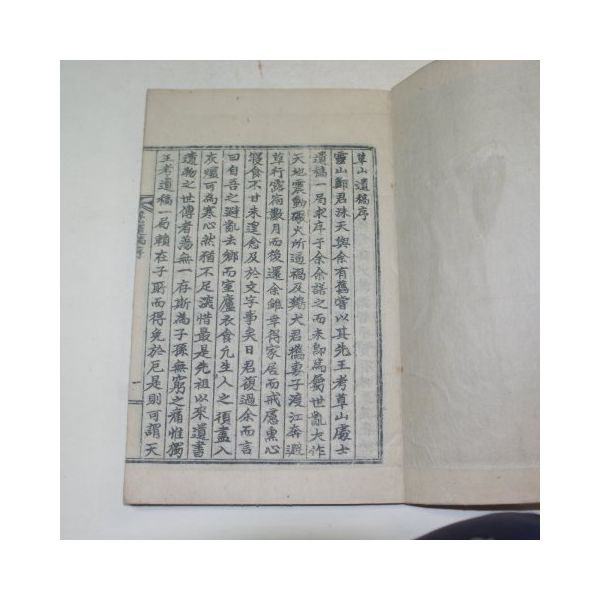 草山遺稿序
靈山鄭君洙天與余有舊嘗以其先王考草山處士
遺稿一局求序于余余諾之而未卽焉蜀世亂大作
天地震動礮火所過禍及鷄犬君擕妻子渡江奔避
草行露宿數月而後還余雖幸得家居而戒慮熏心
寢食不甘未遑念及於文字事矣日君復過余而言
曰自吾之避亂去鄉而室廬衣食凡生人之須盡入
灰燼可爲寒心然猶不足淡惜最是先祖以來遺書
遺物之世傳者蕩無一存斯為子孫無窮之痛惟獨
王考遺稿一局賴在子所而得免於厄是則可謂天
草山遺稿序
一